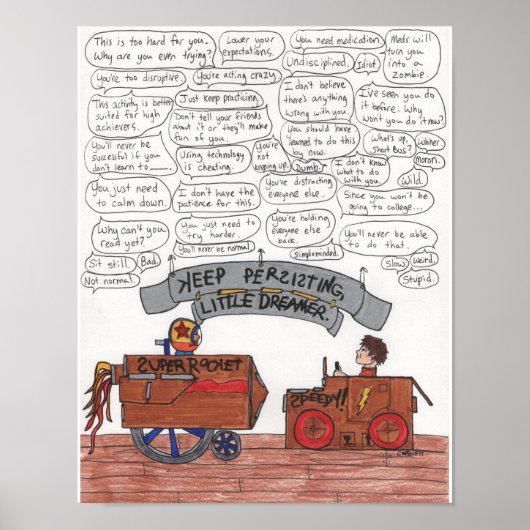 This is too hard for you.
Why are you even trying?
Lower your
expectations.
You need medication.
Meds will
turn you
into a
zombie.
You're too disruptive.
You're acting crazy.
Undisciplined.
Idiot.
This activity is better
suited for high
achievers.
Just keep practicing.
I don't believe
there's anything
wrong with you.
I've seen you do
it before. Why
won't you do it now?
Don't tell your friends
about it or they'll make
fun of you.
You should have
learned to do this
by now.
You'll never be
successful if you
don't learn to ____.
Using technology
is cheating.
You're
not
keeping up.
Dumb.
I don't know
what to do
with you.
What's up,
Short Bus?
Whiner.
moron.
You just need
to calm down.
I don't have the
patience for this.
You're distracting
everyone else.
Wild.
Since you won't be
going to college...
Why can't you
read yet?
You just need to
try harder.
You're holding
everyone else
back.
You'll never be able
to do that.
Sit still.
Bad.
You'll never be normal.
Simpleminded.
Slow.
Weird.
Not normal.
Stupid.
KEEP PERSISTING,
LITTLE DREAMER.
SUPER ROCKET
SPEEDY!